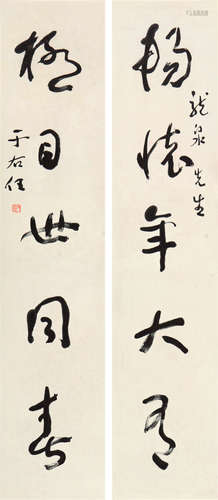 暢懷年大有
龍泉先生
極目世同春
于右任